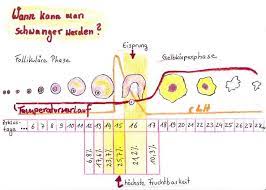 Wann kann man
schwanger werden?
Eisprung
Follikuläre Phase
Gelbkörperphase
Temperaturverlauf
LH
Zyklus-
tage
1 2 3 4 5 6 7 8 9 10 11 12 13 14 15 16 17 18 19 20 21 22 23 24 25 26 27 28
6,8%
17,6%
23,2%
25,7%
21,2%
10,3%
höchste Fruchtbarkeit